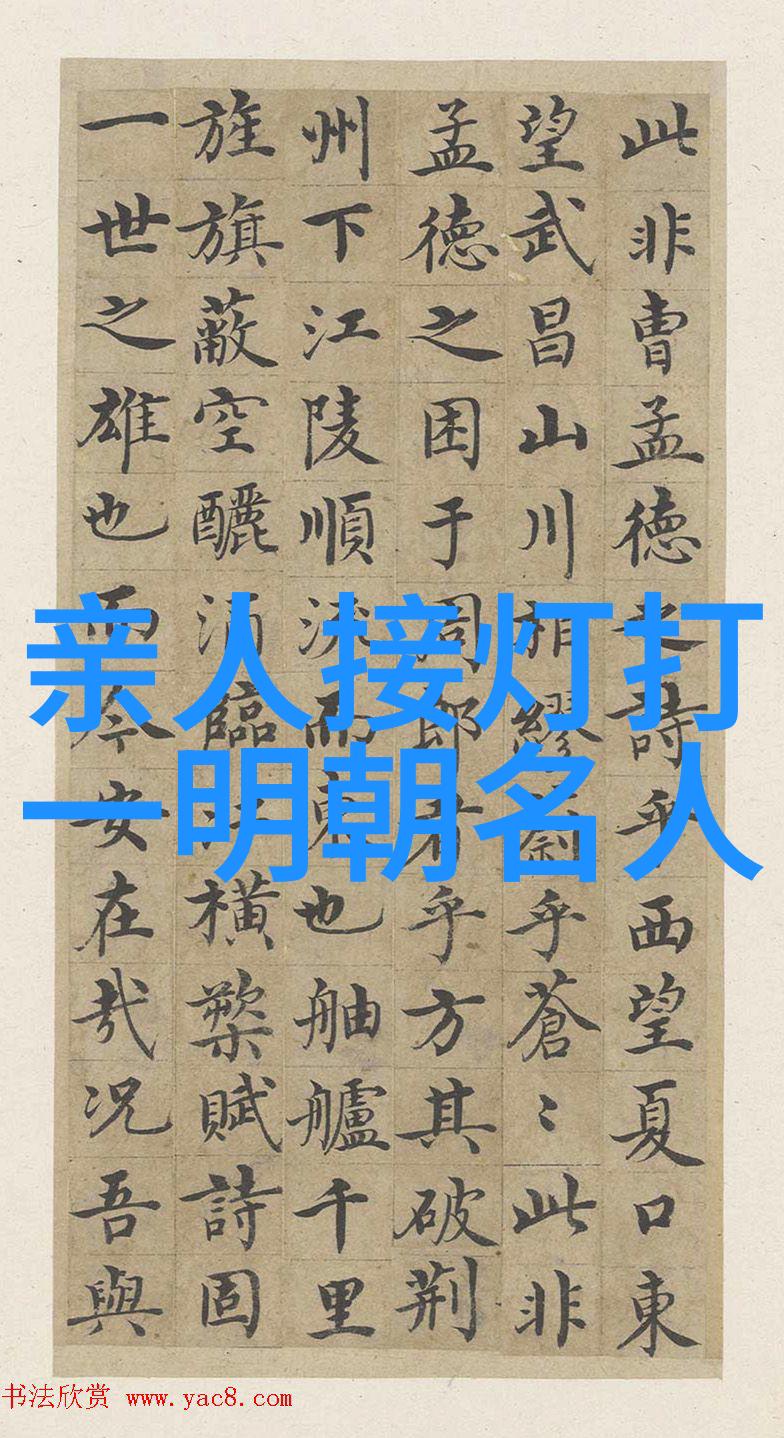 此非曹孟德之詩乎西望夏口東
望武昌山川相繆鬱乎蒼〻此非
孟德之困于周郎者乎方其破荆
州下江陵順流而東也舳艫千里
旌旗蔽空釃酒臨江橫槊賦詩固
一世之雄也而今安在哉況吾與
亲人接灯打
一明朝名人
书法欣赏 www.yac8.com